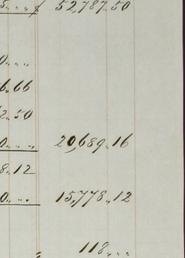 5„„ 52,787.50
0„„
6.66
2.50
0„„ 20,689.16
8.12
0„„ 15,778.12
118„„